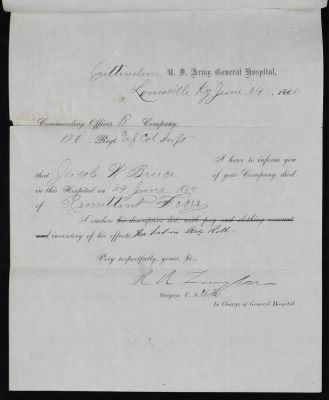 Crittenden U. S. Army General Hospital,
Louisville Ky June 24, 186
Commanding Officer B Company,
120 Regt. U S Col Inft
I have to inform you
that Jacob W Bruce of your Company, died
in this Hospital on 24 June 1865
of Remittent Fever
I inclose his descriptive list, with pay and clothing account,
and inventory of his effects.
Very respectfully, yours, &c.,
R R Taylor
Surgeon U. S. Vols
In Charge of General Hospital.